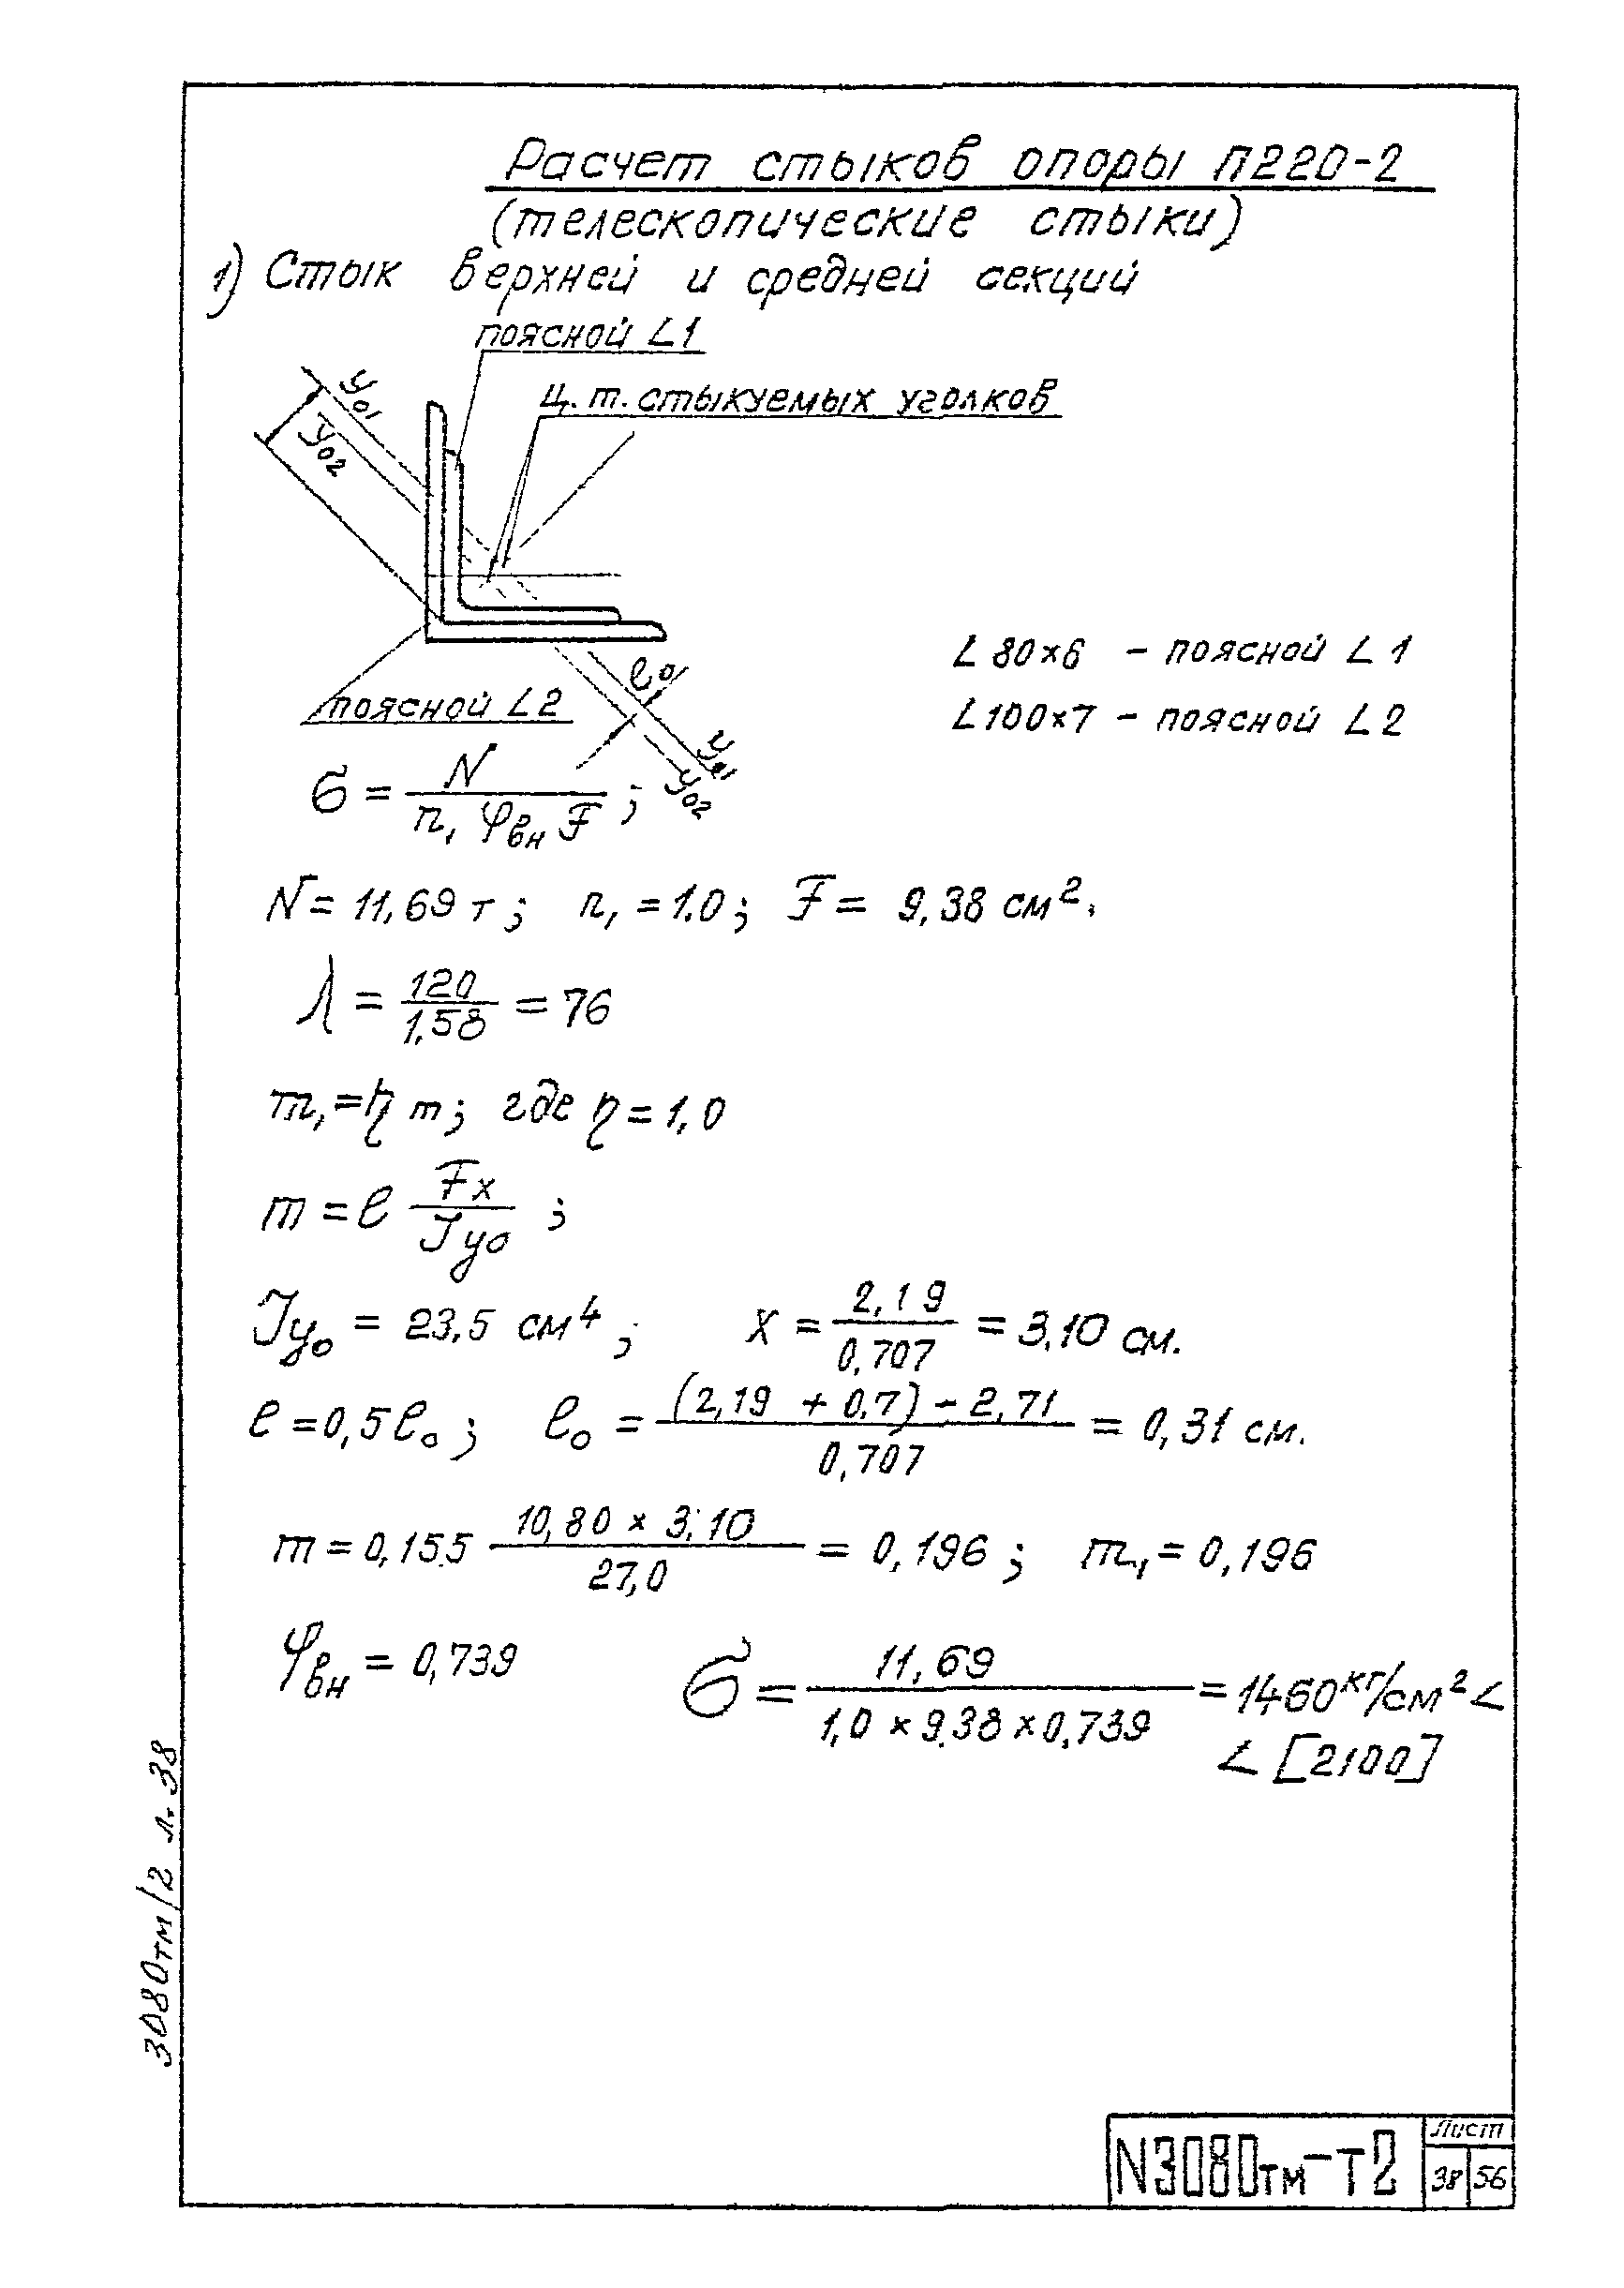 Расчет стыков опоры П220-2
(телескопические стыки)
1) Стык верхней и средней секций
поясной ∠1
ц.т. стыкуемых уголков
y01
y02
∠ 80×6 – поясной ∠ 1
∠ 100×7 – поясной ∠ 2
поясной ∠2
e0
y01
y02
σ = N / (n₁ φвн F) ;
N = 11,69 т ; n₁ = 1.0 ; F = 9,38 см².
λ = 120 / 1.58 = 76
m₁ = η m ; где η = 1,0
m = e Fx / Jyo ;
Jyo = 23,5 см⁴ ; x = 2,19 / 0,707 = 3,10 см.
e = 0,5 e₀ ; e₀ = (2,19 + 0,7) – 2,71 / 0,707 = 0,31 см.
m = 0,155 10,80 × 3,10 / 27,0 = 0,196 ; m₁ = 0,196
φвн = 0,739 σ = 11,69 / 1,0 × 9.38 × 0,739 = 1460 кг/см² <
< [2100]
3080тм/2 л. 38
N3080тм-Т2
Лист
38 56